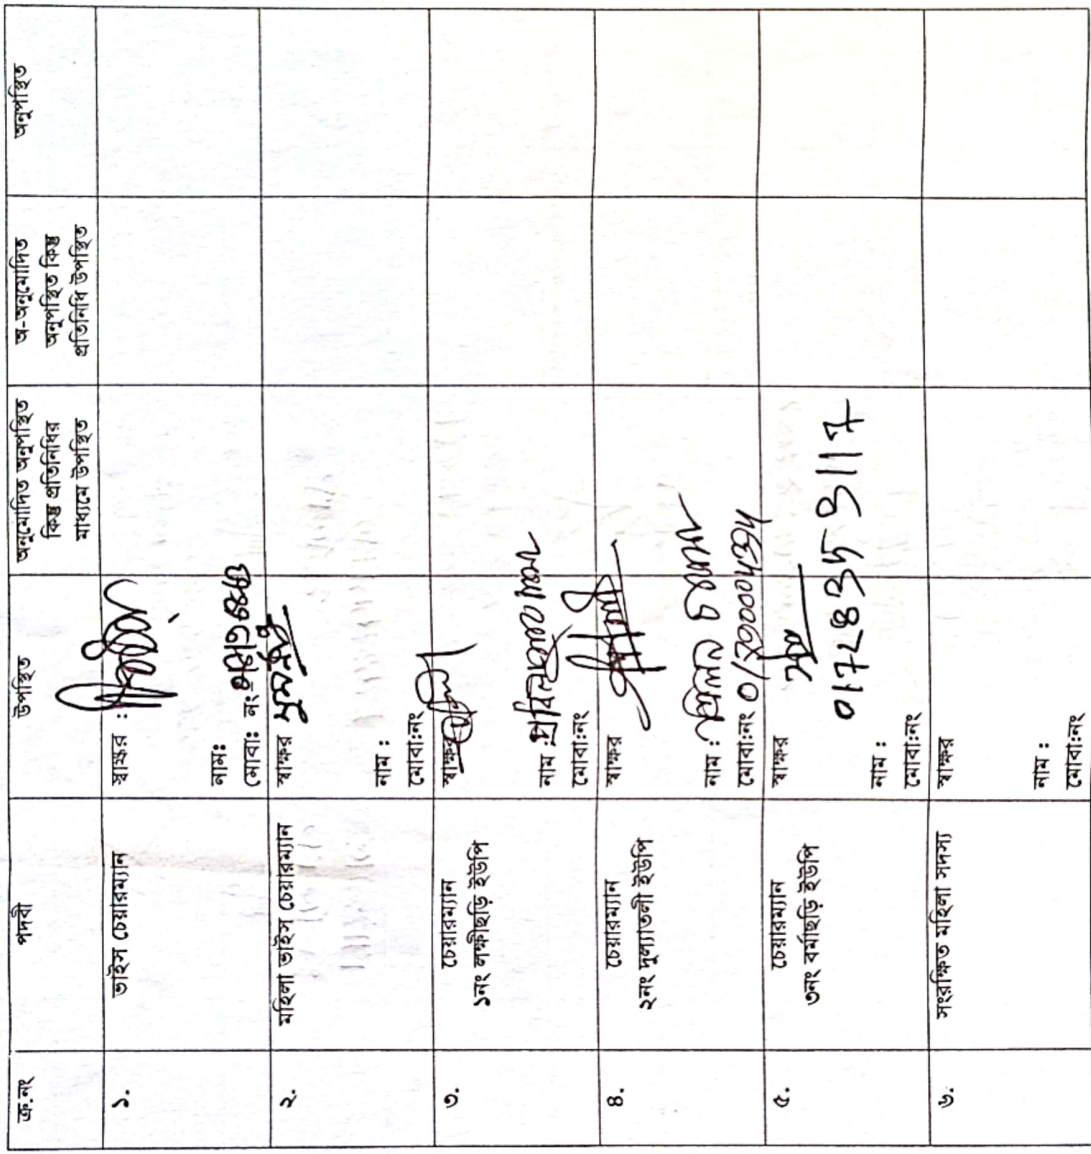 ক্র.নং
পদবী
উপস্থিত
অনুমোদিত অনুপস্থিত
কিন্তু প্রতিনিধির
মাধ্যমে উপস্থিত
অ-অনুমোদিত
অনুপস্থিত কিন্তু
প্রতিনিধি উপস্থিত
অনুপস্থিত
১.
ভাইস চেয়ারম্যান
স্বাক্ষর :
নামঃ
মোবাঃ নং-
২.
মহিলা ভাইস চেয়ারম্যান
স্বাক্ষর
নাম :
মোবা:নং
৩.
চেয়ারম্যান
১নং লক্ষীছড়ি ইউপি
স্বাক্ষর
নাম :
মোবা:নং
৪.
চেয়ারম্যান
২নং দুল্যাতলী ইউপি
স্বাক্ষর
নাম :
মোবা:নং
৫.
চেয়ারম্যান
৩নং বর্মাছড়ি ইউপি
স্বাক্ষর
01728353117
নাম :
মোবা:নং
৬.
সংরক্ষিত মহিলা সদস্য
স্বাক্ষর
নাম :
মোবা:নং